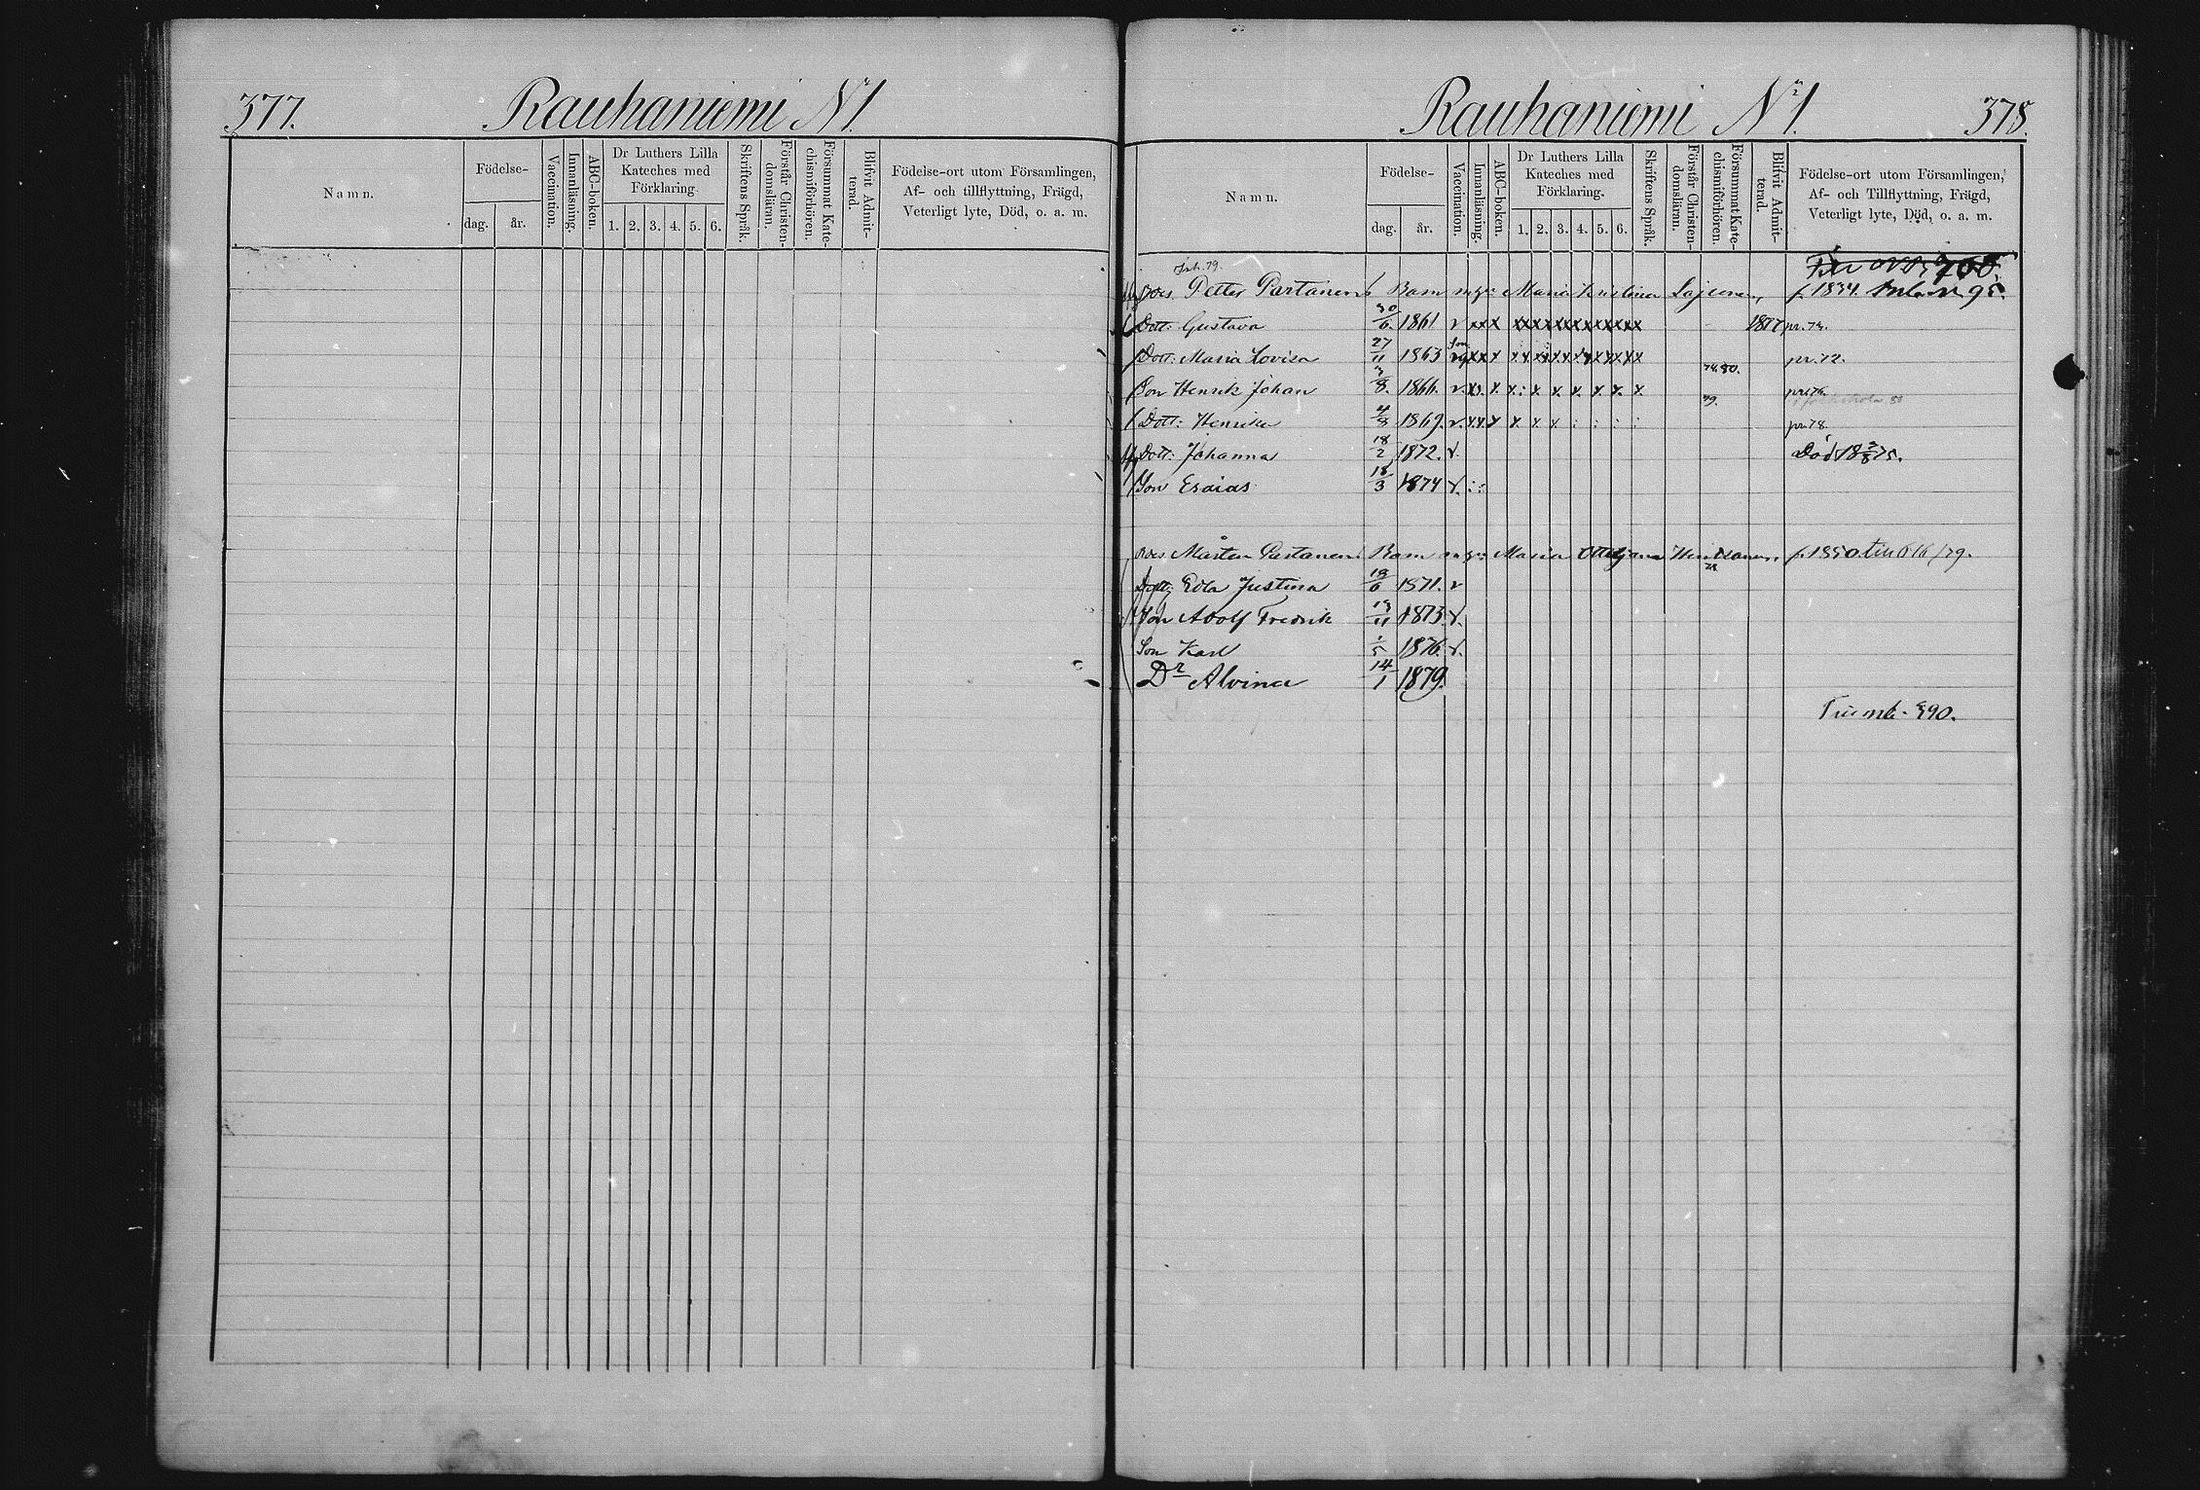 377. Rauhaniemi N1.
Namn. Födelse- dag. år. Vaccination. Innanläsning. ABC-boken. Dr Luthers Lilla Kateches med Förklaring. 1. 2. 3. 4. 5. 6. Skriftens Språk. Förstår Christendomsläran. Försummat Katechismiförhören. Blifvit Admitterad. Födelse-ort utom Församlingen, Af- och tillflyttning, Frägd, Veterligt lyte, Död, o. a. m.
Rauhaniemi N1. 378.
Namn. Födelse- dag. år. Vaccination. Innanläsning. ABC-boken. Dr Luthers Lilla Kateches med Förklaring. 1. 2. 3. 4. 5. 6. Skriftens Språk. Förstår Christendomsläran. Försummat Katechismiförhören. Blifvit Admitterad. Födelse-ort utom Församlingen, Af- och Tillflyttning, Frägd, Veterligt lyte, Död, o. a. m.
Petter Partanens Barn m. Maria Kristina f. 1834.
Dott: Gustava 30/6 1861 v xxx xxxxxxxxxxxx 1877
Dott: Maria Lovisa 27/11 1863 pr. 72.
79.80.
Son Henrik Johan 3/8 1866. v.
79.
Dott: Henrika 4/8 1869. v. pr 78
Dott: Johanna 18/2 1872. v. Död
Son Esaias 18/3 1874 v.
Mårten Partanens Barn m. Maria f. 1850
Dott: Edla Justina 18/6 1871. v
Son Adolf Fredrik 19/11 1873. v.
Son Karl 1/5 1876. v.
Dr Alvina 14/1 1879.